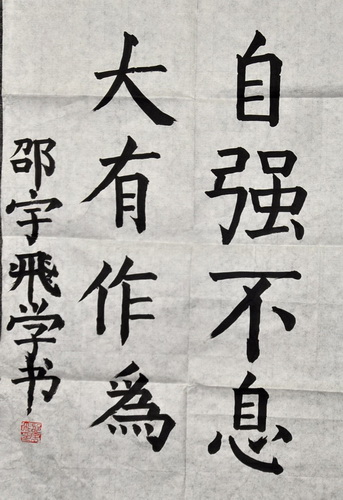 自强不息
大有作為
邵宇飛学书